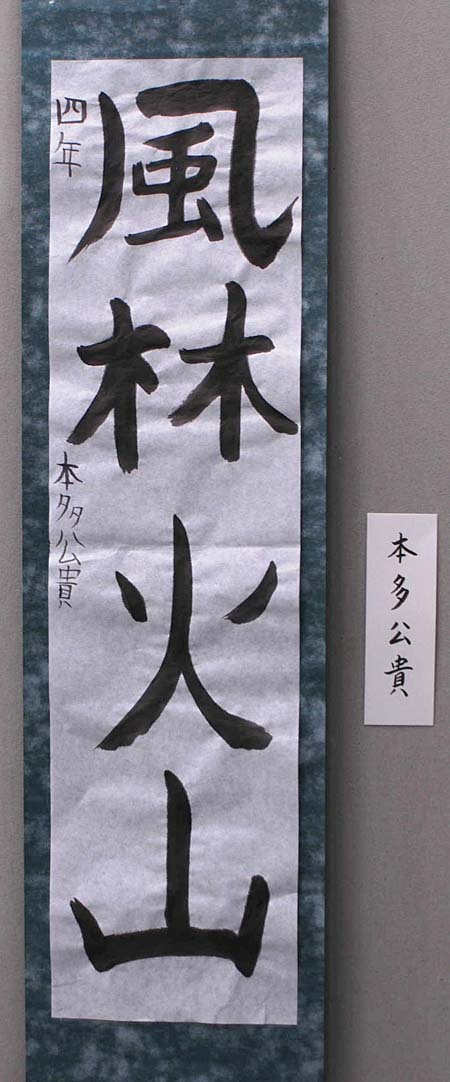 風林火山
四年 本多公貴
本多公貴